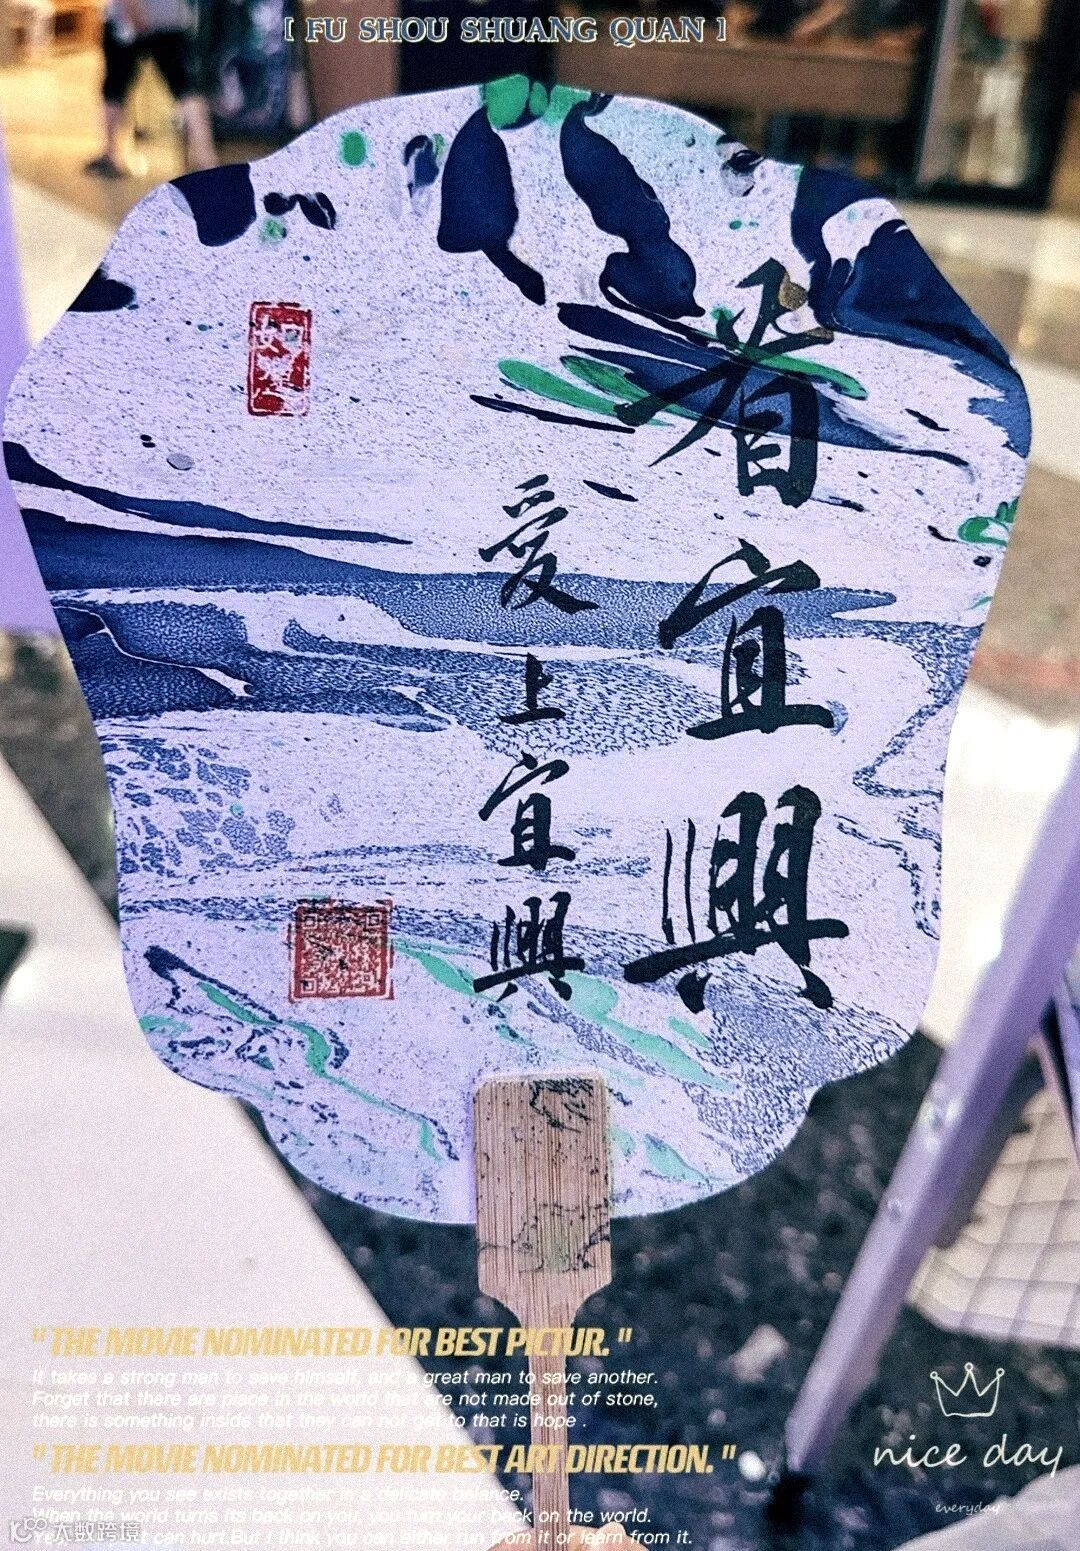 [ FU SHOU SHUANG QUAN ]
看宜興
爱上宜興
" THE MOVIE NOMINATED FOR BEST PICTUR. "
It takes a strong man to save himself, and a great man to save another.
Forget that there are place in the world that are not made out of stone,
there is something inside that they can not get to that is hope .
" THE MOVIE NOMINATED FOR BEST ART DIRECTION. "
Everything you see exists together in a delicate balance.
When the world turns its back on you, you turn your back on the world.
Yes, past can hurt.But I think you can either run from it or learn from it.
nice day
everyday
大数跨境